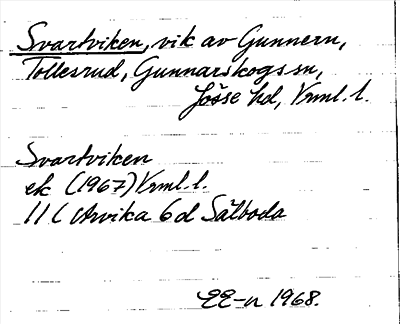 Svartviken, vik av Gunnern,
Tollesrud, Gunnarskogs sn,
Jösse hd, Vrml. l.
Svartviken
ek (1967) Vrml. l.
11 C Arvika 6d Sälboda
EE-n 1968.